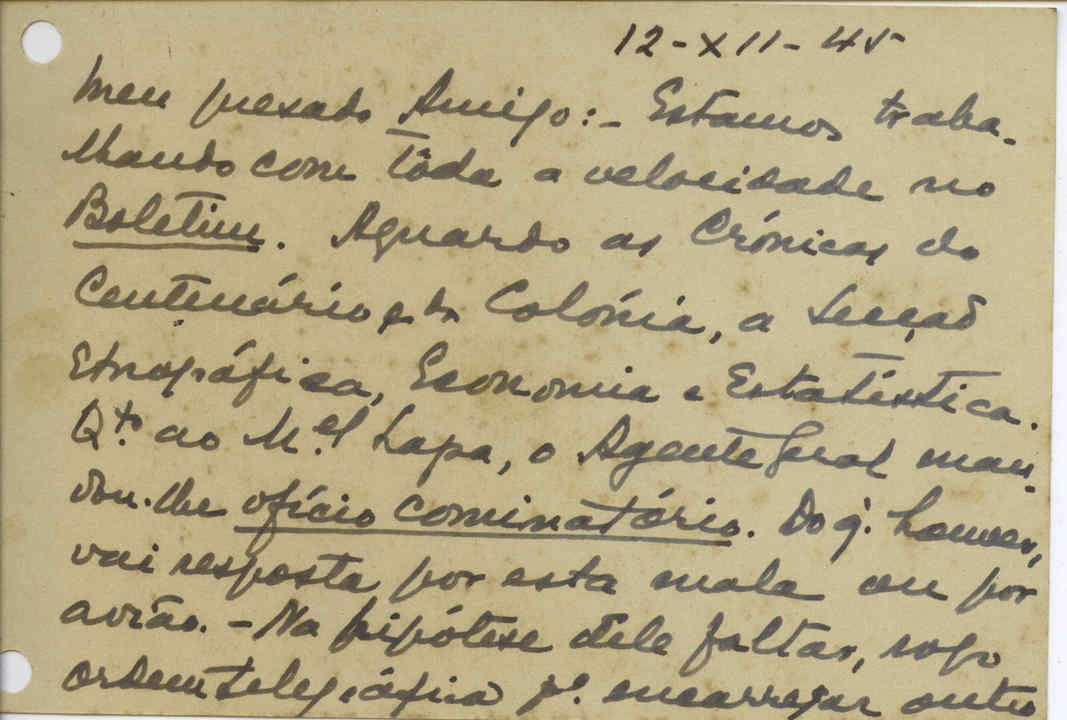 12-XII-45
Meu presado Amigo:- Estamos traba-
lhando com tôda a velocidade no
Boletim. Aguardo as Crónicas do
Centenário e da Colónia, a Secção
Etnográfica, Economia e Estatística.
Qto. ao Mel. Lapa, o Agente Geral man-
dou-lhe ofício cominatório. Do q. houver,
vai resposta por esta mala ou por
avião. - Na hipótese dele faltar, rogo
ordem telegráfica pa. encarregar outro